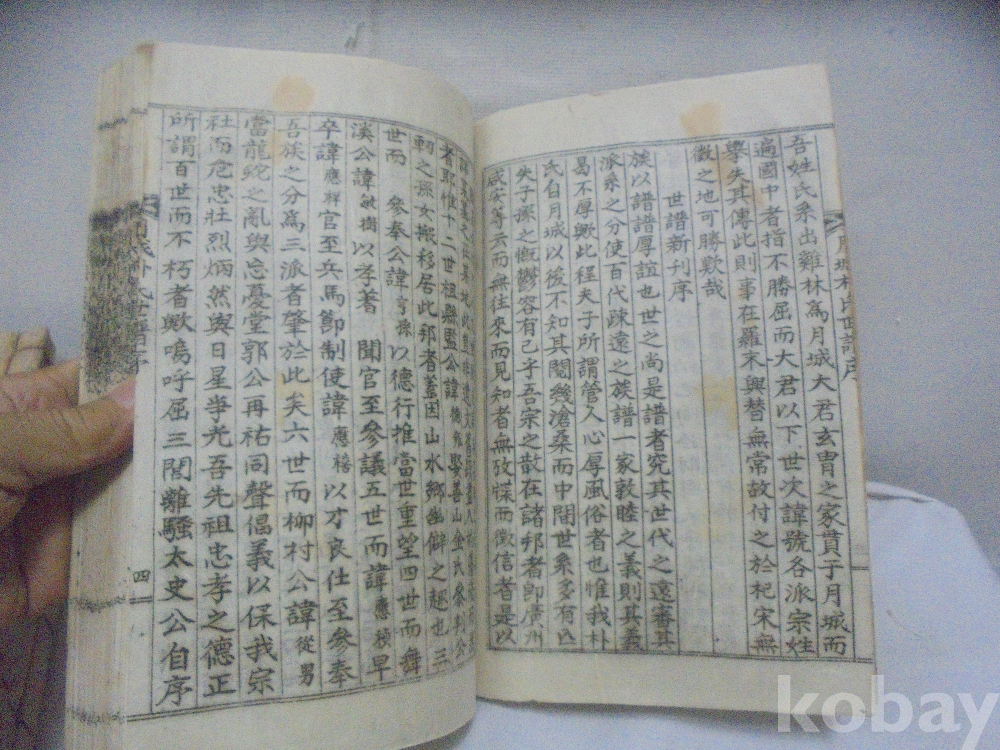 吾姓氏系出雞林為月城大君玄胄之家貫于月城而
遍國中者指不勝屈而大君以下世次諱號各派宗姓
擧失其傳此則事在羅末興替無常故付之於杞宋無
徵之地可勝歎哉
世譜新刊序
族以譜譜厚誼也世之尚是譜者究其世代之遠審其
派系之分使百代疎遠之族譜一家敦睦之義則其義
曷不厚歟此程夫子所謂管人心厚風俗者也惟我朴
氏自月城以後不知其閱幾滄桑而中間世系多有亡
失子孫之慨鬱容有已乎吾宗之散在諸邦者卽廣州
咸安等云而無往來而見知者無攷牒而徵信者是以
者耶惟十二世祖縣監公諱 娶善山金氏參判公
軔之孫女搬移居此邦者盖因山水鄉幽僻之趣也三
世而 參奉公諱亨 以德行推當世重望四世而舞
溪公諱敏樹以孝著 聞官至參議五世而諱應 早
卒諱應祥官至兵馬節制使諱應禧以才良仕至參奉
吾族之分為三派者肇於此矣六世而柳村公諱從男
當龍蛇之亂與忘憂堂郭公再祐同聲倡義以保我宗
社而危忠壯烈炳然與日星爭光吾先祖忠孝之德正
所謂百世而不朽者歟嗚呼屈三閭離騷太史公自序
四
kobay